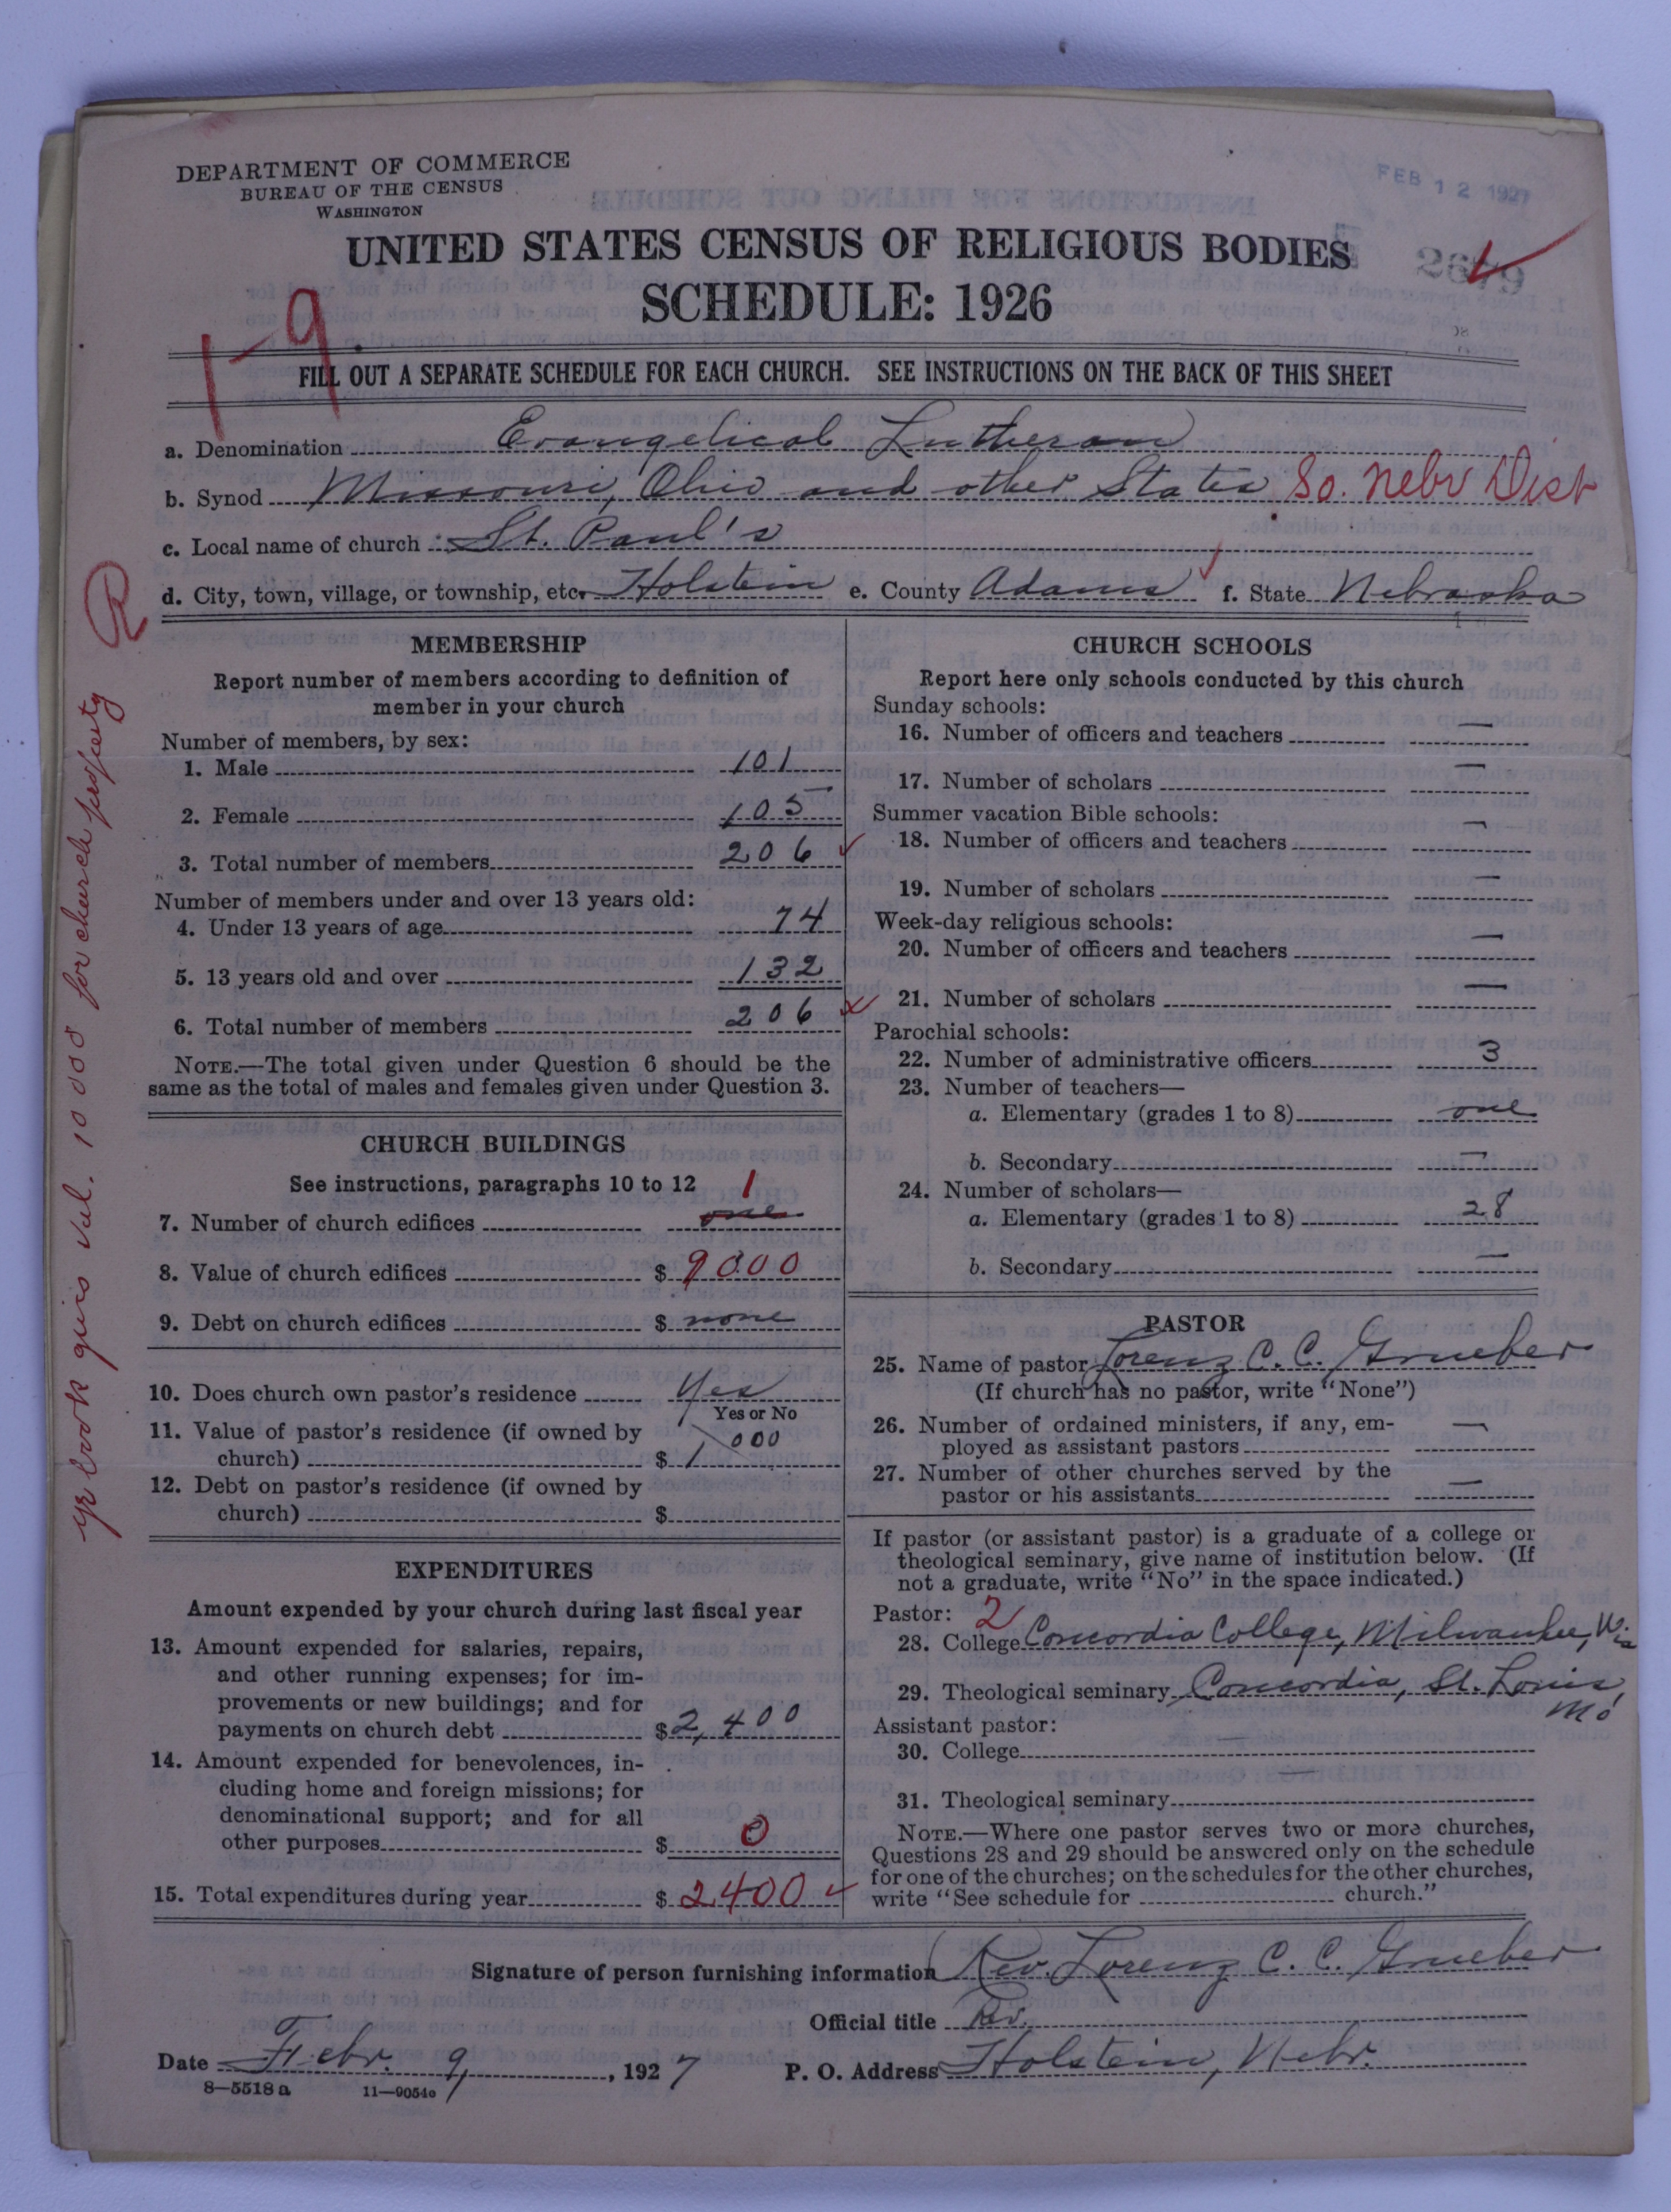 DEPARTMENT OF COMMERCE
BUREAU OF THE CENSUS
WASHINGTON
FEB 12 1927
UNITED STATES CENSUS OF RELIGIOUS BODIES
SCHEDULE: 1926
2679
1-9.
FILL OUT A SEPARATE SCHEDULE FOR EACH CHURCH. SEE INSTRUCTIONS ON THE BACK OF THIS SHEET
a. Denomination Evangelical Lutheran
b. Synod Missouri, Ohio and other States So. Nebr Dist
c. Local name of church St. Paul's
d. City, town, village, or township, etc. Holstein e. County Adams f. State Nebraska
R
yr book gives val. 10 000 for church property
MEMBERSHIP
Report number of members according to definition of
member in your church
Number of members, by sex:
1. Male 101
2. Female 105
3. Total number of members 206
Number of members under and over 13 years old:
4. Under 13 years of age 74
5. 13 years old and over 132
6. Total number of members 206
NOTE.—The total given under Question 6 should be the
same as the total of males and females given under Question 3.
CHURCH BUILDINGS
See instructions, paragraphs 10 to 12
7. Number of church edifices one 1
8. Value of church edifices $ 9000
9. Debt on church edifices $ none
10. Does church own pastor's residence Yes
Yes or No
11. Value of pastor's residence (if owned by
church) $ 1000
12. Debt on pastor's residence (if owned by
church) $
EXPENDITURES
Amount expended by your church during last fiscal year
13. Amount expended for salaries, repairs,
and other running expenses; for im-
provements or new buildings; and for
payments on church debt $ 2,400
14. Amount expended for benevolences, in-
cluding home and foreign missions; for
denominational support; and for all
other purposes $ 0
15. Total expenditures during year $ 2400
CHURCH SCHOOLS
Report here only schools conducted by this church
Sunday schools:
16. Number of officers and teachers —
17. Number of scholars —
Summer vacation Bible schools:
18. Number of officers and teachers —
19. Number of scholars —
Week-day religious schools:
20. Number of officers and teachers —
21. Number of scholars —
Parochial schools:
22. Number of administrative officers 3
23. Number of teachers—
a. Elementary (grades 1 to 8) one
b. Secondary —
24. Number of scholars—
a. Elementary (grades 1 to 8) 28
b. Secondary —
PASTOR
25. Name of pastor Lorenz C. C. Grueber
(If church has no pastor, write "None")
26. Number of ordained ministers, if any, em-
ployed as assistant pastors —
27. Number of other churches served by the
pastor or his assistants —
If pastor (or assistant pastor) is a graduate of a college or
theological seminary, give name of institution below. (If
not a graduate, write "No" in the space indicated.)
Pastor: 2
28. College Concordia College, Milwaukee, Wis
29. Theological seminary Concordia, St. Louis,
Mo
Assistant pastor:
30. College
31. Theological seminary
NOTE.—Where one pastor serves two or more churches,
Questions 28 and 29 should be answered only on the schedule
for one of the churches; on the schedules for the other churches,
write "See schedule for church."
Signature of person furnishing information Rev. Lorenz C. C. Grueber
Official title Rev.
Date Febr. 9, 1927 P. O. Address Holstein, Nebr.
8—5518 a 11—9054